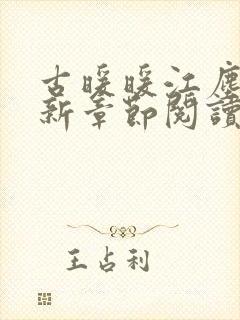 古暖暖江塵
新章節閱讀
王占利